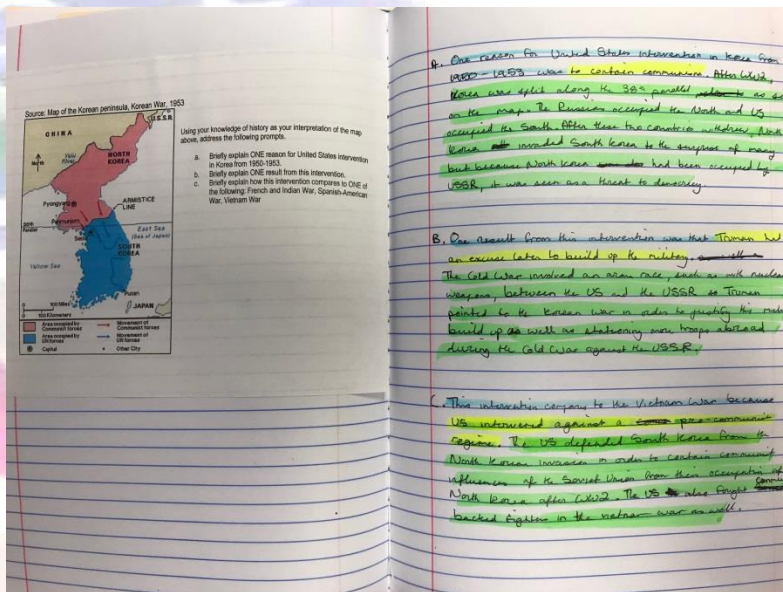 Source: Map of the Korean peninsula, Korean War, 1953
U.S.S.R
CHINA
North
Yalu
River
NORTH
KOREA
Pyongyang
ARMISTICE
LINE
Panmunjom
38th
Parallel
Seoul
East Sea
(Sea of Japan)
SOUTH
KOREA
Yellow Sea
Pusan
JAPAN
0 100 Miles
0 100 Kilometers
Area occupied by
Communist forces
Movement of
Communist forces
Area occupied by
UN forces
Movement of
UN forces
Capital
Other City
Using your knowledge of history as your interpretation of the map
above, address the following prompts.
a. Briefly explain ONE reason for United States intervention
in Korea from 1950-1953.
b. Briefly explain ONE result from this intervention.
c. Briefly explain how this intervention compares to ONE of
the following: French and Indian War, Spanish-American
War, Vietnam War
A. One reason for United States intervention in Korea from
1950-1953 was to contain communism. After WW2,
Korea was split along the 38th parallel as
on the map. The Russians occupied the North and US
occupied the South. After these two countries withdrew, Nor
Korea invaded South Korea to the surprise of many
but because North Korea had been occupied by
USSR, it was seen as a threat to democracy.
B. One result from this intervention was that Truman had
an excuse later to build up the military.
The Cold War involved an arms race, such as with nuclear
weapons, between the US and the USSR so Truman
pointed to the Korean War in order to justify this
build up as well as stationing more troops abroad
during the Cold War against the USSR.
C. This intervention compares to the Vietnam War because
US intervened against a pro communist
regime. The US defended South Korea from the
North Korean invasion in order to contain communist
influences of the Soviet Union from their occupation of
North Korea after WW2. The US also fought
backed fighters in the vietnam war as well.